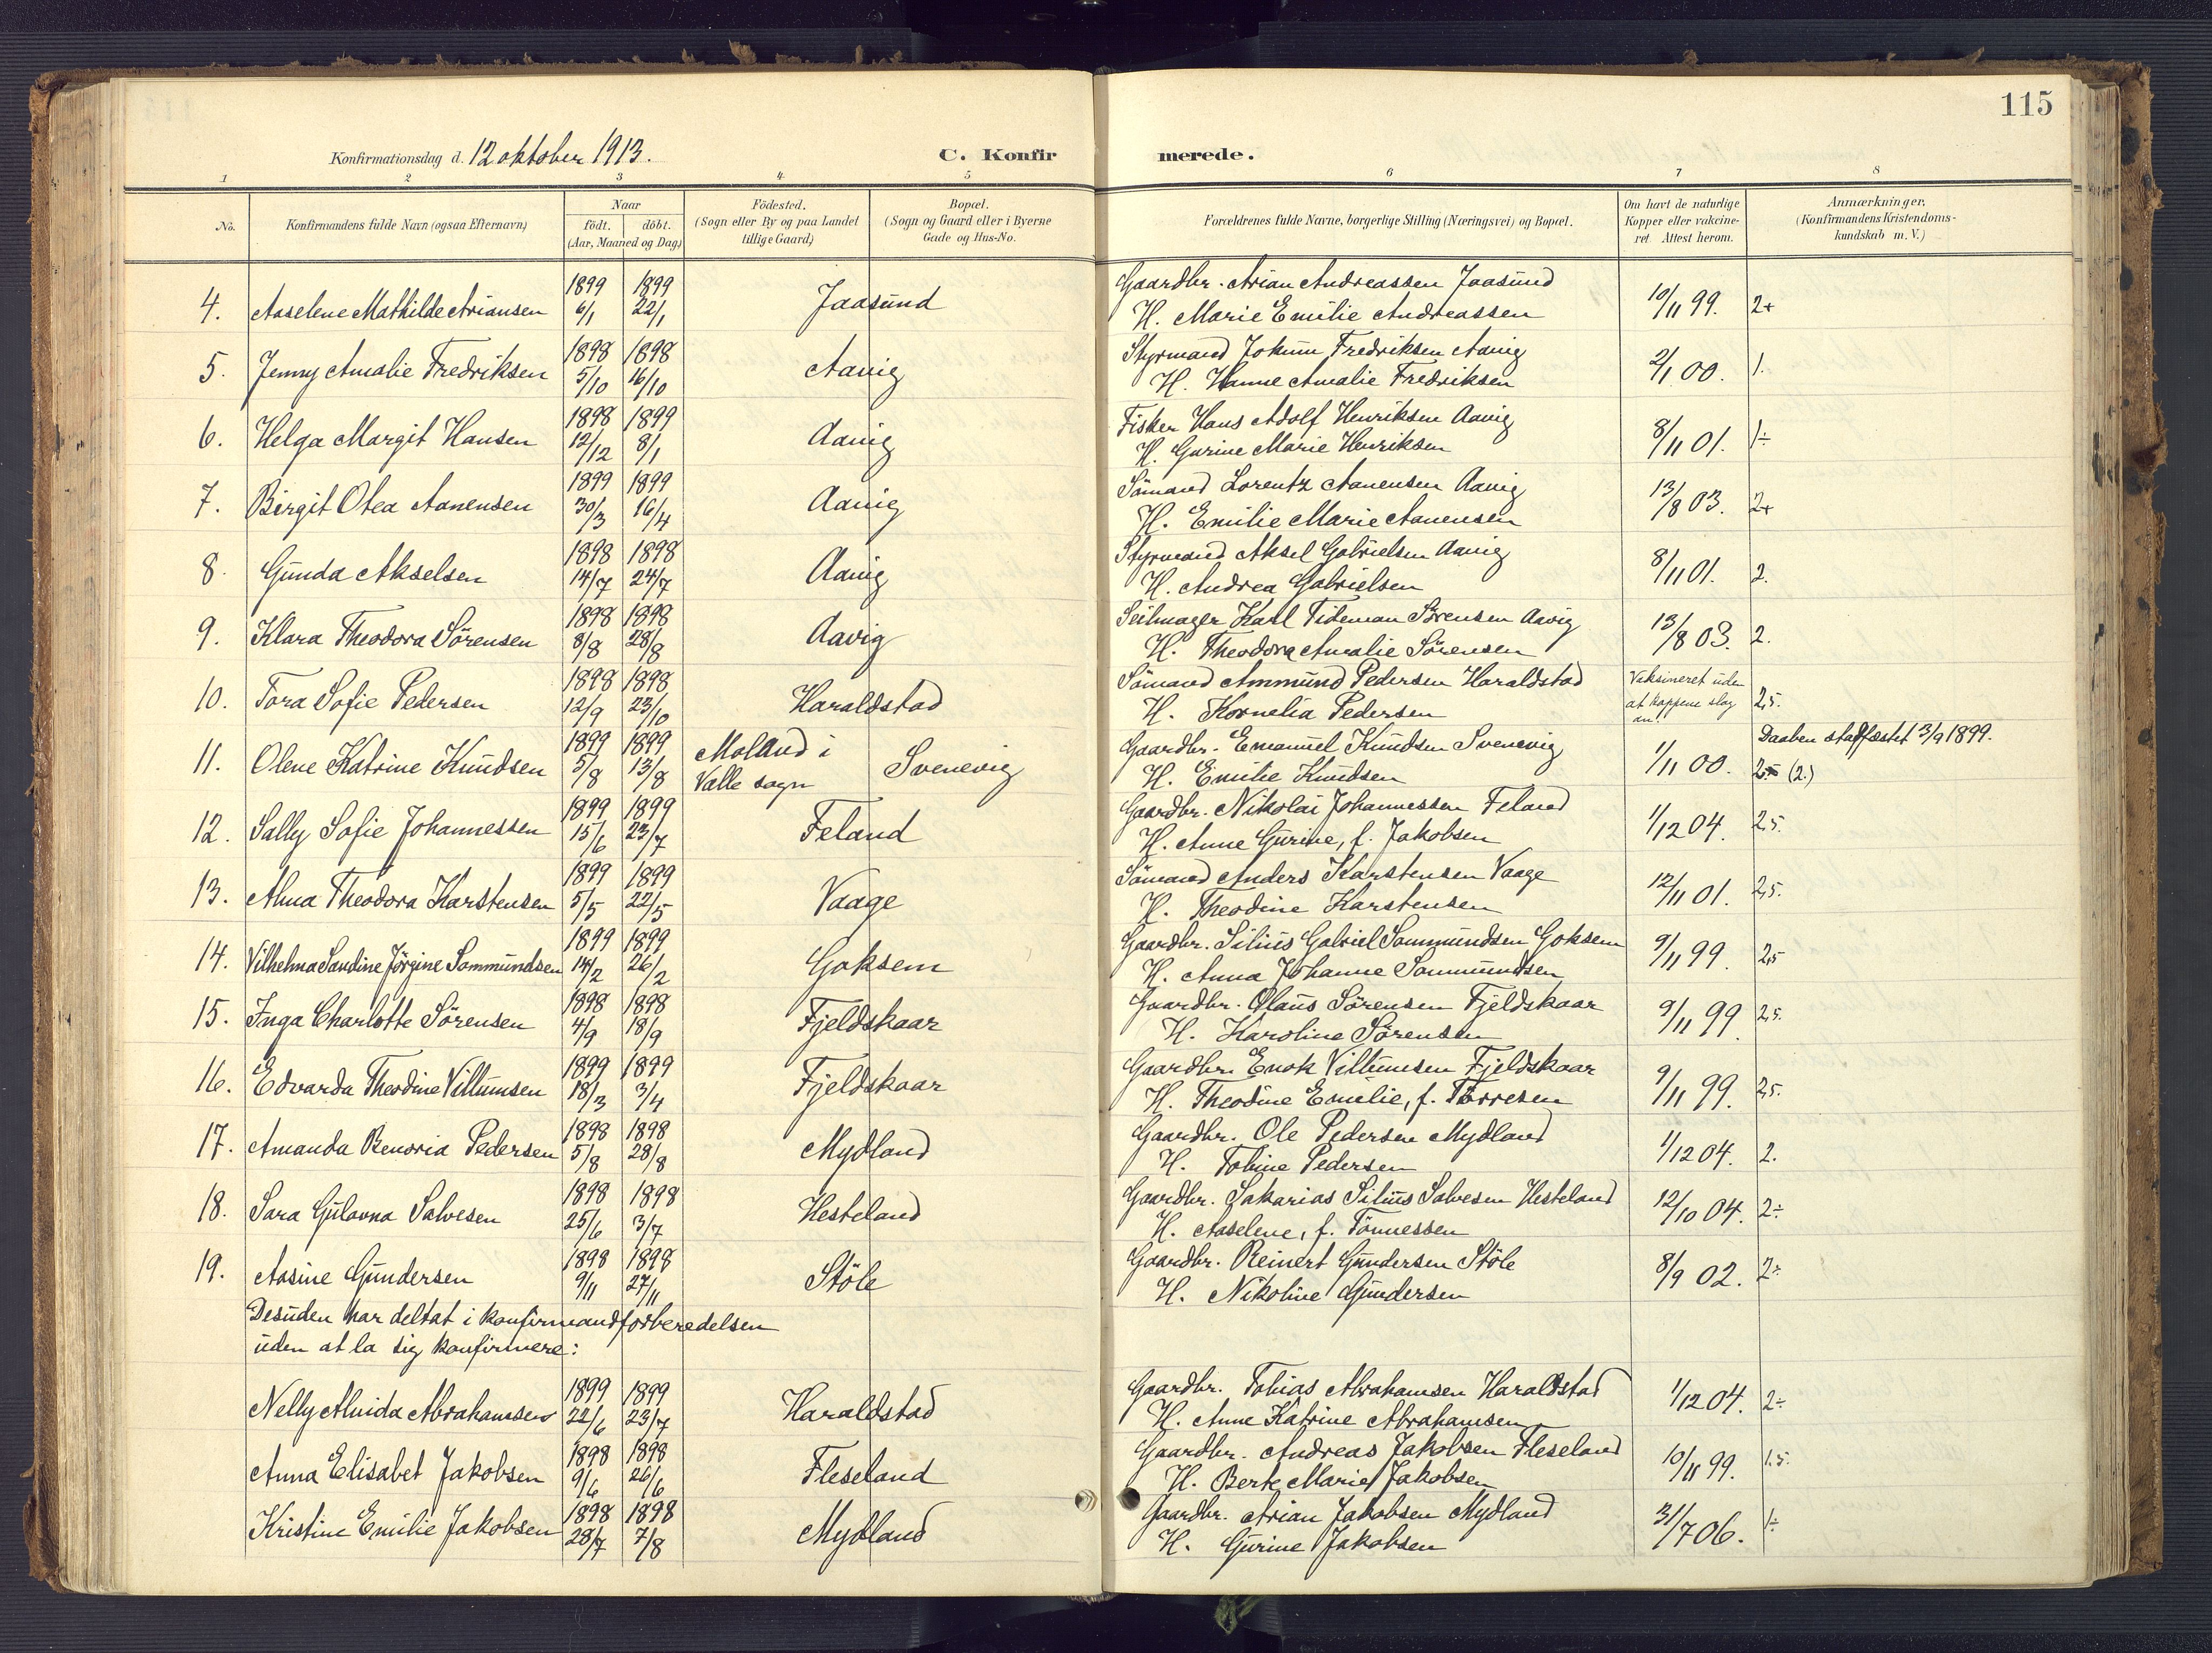 115
Konfirmationsdag d. 12 oktober 1913.
C. Konfirmerede.
1 2 3 4 5 6 7 8
No.
Konfirmandens fulde Navn (ogsaa Efternavn)
Naar
födt. döbt.
(Aar, Maaned og Dag)
Födested.
(Sogn eller By og paa Landet
tillige Gaard)
Bopæl.
(Sogn og Gaard eller i Byerne
Gade og Hus-No.
Forældrenes fulde Navne, borgerlige Stilling (Næringsvei) og Bopæl.
Om havt de naturlige
Kopper eller vakcine-
ret. Attest herom.
Anmærkninger.
(Konfirmandens Kristendoms-
kundskab m. V.)
4. Aaselene Mathilde Ariansen 1899 6/1 1899 22/1 Jaasund Gaardbr. Arian Andreassen Jaasund
H. Marie Emilie Andreassen 10/11 99. 2+
5. Jenny Amalie Fredriksen 1898 5/10 1898 16/10 Aavig Styrmand Jokum Fredriksen Aavig
H. Hanne Amalie Fredriksen 2/1 00. 1.
6. Helga Margit Hansen 1898 12/12 1899 8/1 Aavig Fisker Hans Adolf Henriksen Aavig
H. Gurine Marie Henriksen 8/11 01. 1÷
7. Birgit Otea Aanensen 1899 30/3 1899 16/4 Aavig Sömand Lorentz Aanensen Aavig
H. Emilie Marie Aanensen 13/8 03. 2+
8. Gunda Akselsen 1898 14/7 1898 24/7 Aavig Styrmand Aksel Gabrielsen Aavig
H. Andrea Gabrielsen 8/11 01. 2.
9. Klara Theodora Sörensen 1898 8/8 1898 28/8 Aavig Seilmager Karl Tideman Sörensen Aavig
H. Theodora Amalie Sörensen 13/8 03. 2.
10. Tora Sofie Pedersen 1898 12/9 1898 23/10 Haraldstad Sömand Ammund Pedersen Haraldstad
H. Kornelia Pedersen Vaksineret uden
at koppene slog
an! 2,5.
11. Olene Katrine Knudsen 1899 5/8 1899 13/8 Molland i
Valle sogn Svenevig Gaardbr. Emanuel Knudsen Svenevig
H. Emilie Knudsen 1/11 00. Daaben stadfæstet 3/9 1899.
(2.)
12. Sally Sofie Johannessen 1899 15/6 1899 23/7 Feland Gaardbr. Nikolai Johannessen Feland
H. Anne Gurine, f. Jakobsen 1/12 04. 2,5.
13. Alma Theodora Karstensen 1899 5/5 1899 22/5 Vaage Sömand Anders Karstensen Vaage
H. Theodine Karstensen 12/11 01. 2,5.
14. Vilhelma Sandine Jörgine Sommundsen 1899 14/2 1899 26/2 Goksem Gaardbr. Silius Gabriel Sommundsen Goksem
H. Anna Johanne Sommundsen 9/11 99. 2,5
15. Inga Charlotte Sörensen 1898 4/9 1898 18/9 Fjeldskaar Gaardbr. Olaus Sörensen Fjeldskaar
H. Karoline Sörensen 9/11 99 2,5.
16. Edvarda Theodine Villumsen 1899 18/3 1899 3/4 Fjeldskaar Gaardbr. Enok Villumsen Fjeldskaar
H. Theodine Emilie, f. Torresen 9/11 99. 2,5.
17. Amanda Renoria Pedersen 1898 5/8 1898 28/8 Mydland Gaardbr. Ole Pedersen Mydland
H. Tobine Pedersen 1/12 04. 2.
18. Sara Gulovna Salvesen 1898 25/6 1898 3/7 Hesteland Gaardbr. Sakarias Silius Salvesen Hesteland
H. Aaselene, f. Tönnessen 12/10 04. 2÷
19. Aasine Gundersen 1898 9/11 1898 27/11 Stöle Gaardbr. Reinert Gundersen Stöle
H. Nikoline Gundersen 8/9 02. 2÷
Desuden har deltat i konfirmandforberedelsen
uden at la sig konfirmere:
Nelly Alvida Abrahamsen 1899 22/6 1899 23/7 Haraldstad Gaardbr. Tobias Abrahamsen Haraldstad
H. Anne Katrine Abrahamsen 1/12 04. 2÷
Anna Elisabet Jakobsen 1898 9/6 1898 26/6 Fleseland Gaardbr. Andreas Jakobsen Fleseland
H. Berte Marie Jakobsen 10/11 99. 1,5.
Kristine Emilie Jakobsen 1898 28/7 1898 7/8 Mydland Gaardbr. Arian Jakobsen Mydland
H. Gurine Jakobsen 31/7 06. 1÷